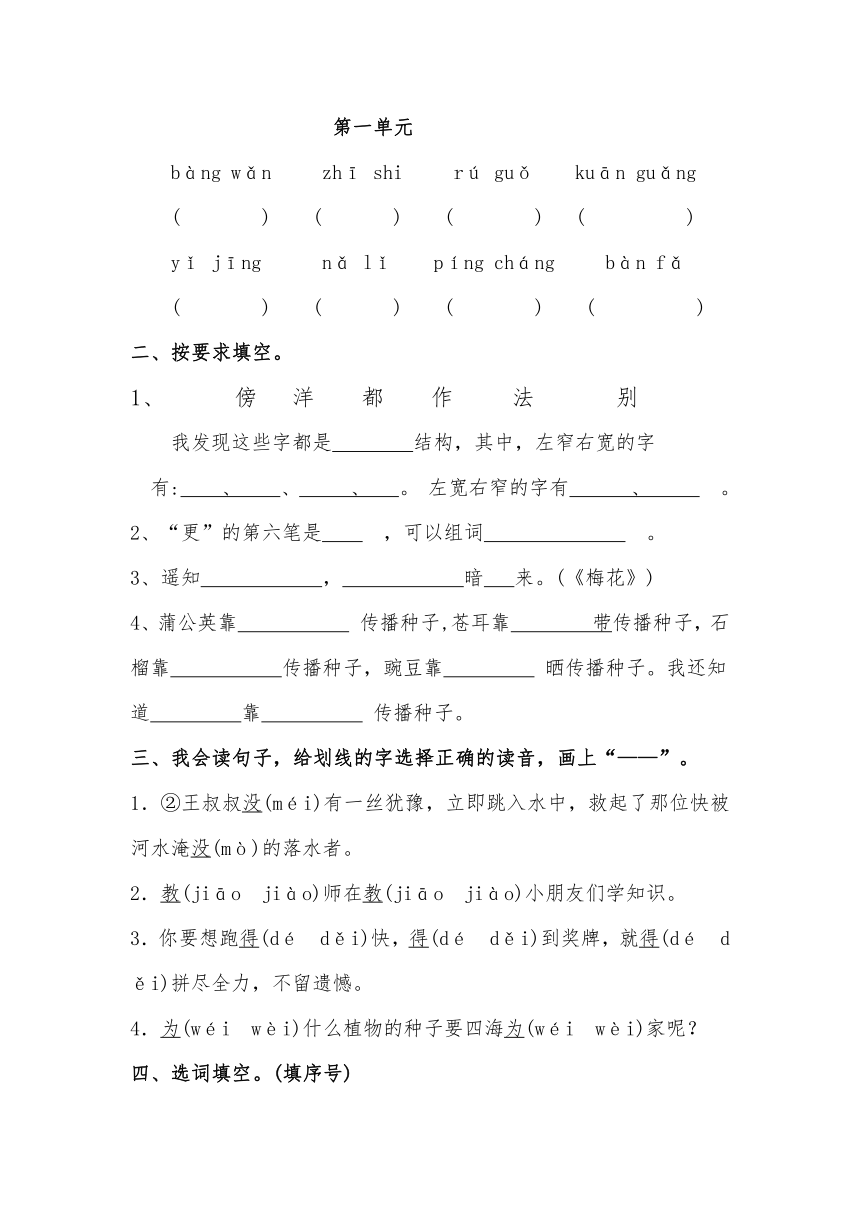 第一单元
bàng wǎn zhī shi rú guǒ kuān guǎng
( ) ( ) ( ) ( )
yǐ jīng nǎ lǐ píng cháng bàn fǎ
( ) ( ) ( ) ( )
二、按要求填空。
1、 傍 洋 都 作 法 别
我发现这些字都是________结构，其中，左窄右宽的字
有：____、____、_____、___。 左宽右窄的字有______、______ 。
2、“更”的第六笔是____ ，可以组词______________ 。
3、遥知____________，____________暗___来。(《梅花》)
4、蒲公英靠___________ 传播种子,苍耳靠________带传播种子，石
榴靠___________传播种子，豌豆靠_________ 晒传播种子。我还知
道_________靠__________ 传播种子。
三、我会读句子，给划线的字选择正确的读音，画上“——”。
1．②王叔叔没(méi)有一丝犹豫，立即跳入水中，救起了那位快被
河水淹没(mò)的落水者。
2．教(jiāo jiào)师在教(jiāo jiào)小朋友们学知识。
3．你要想跑得(dé děi)快，得(dé děi)到奖牌，就得(dé d
ěi)拼尽全力，不留遗憾。
4．为(wéi wèi)什么植物的种子要四海为(wéi wèi)家呢？
四、选词填空。(填序号)